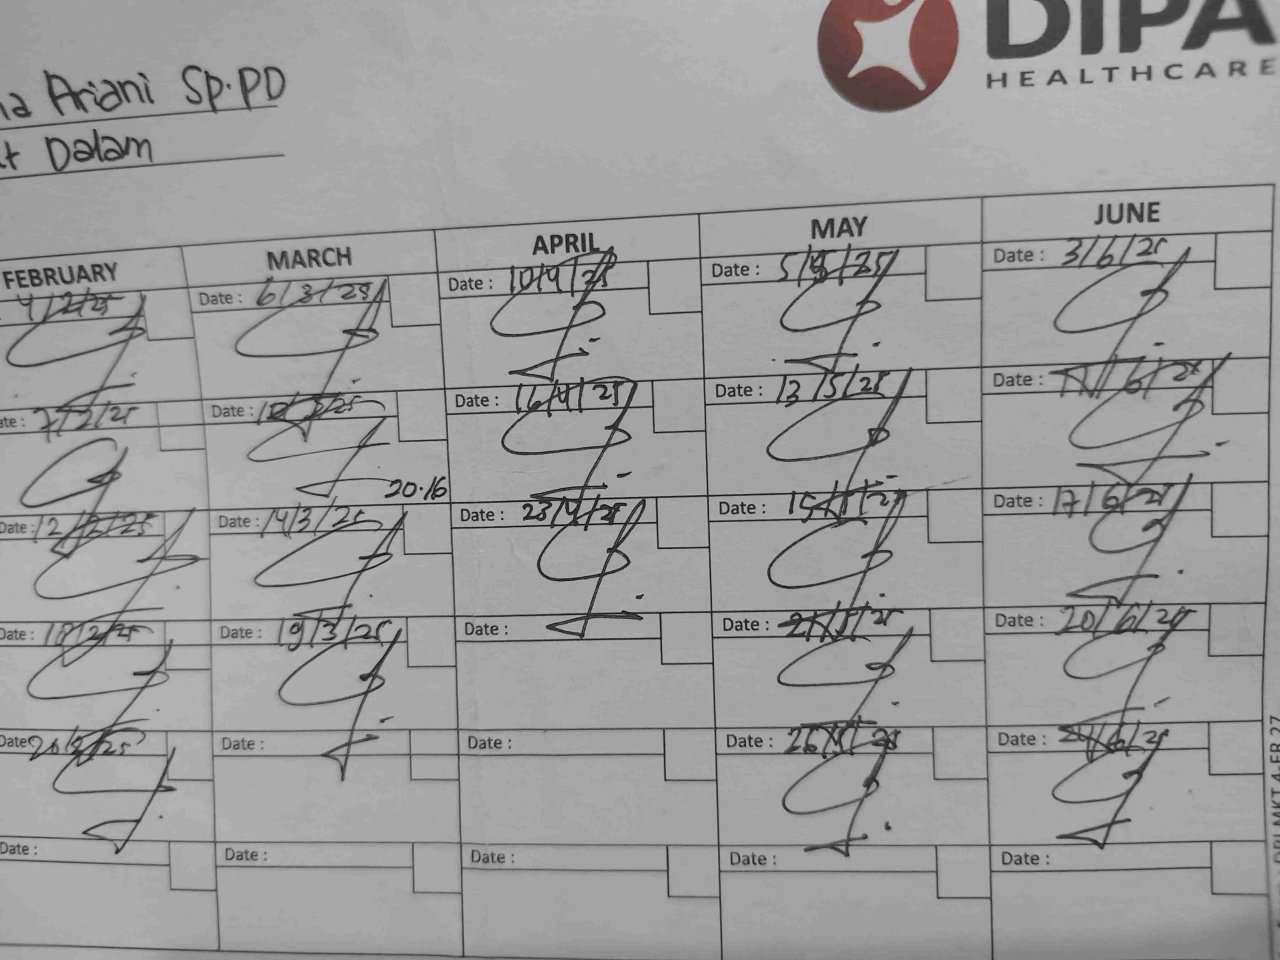 DIPA
HEALTHCARE
Ariani Sp.PD
Dalam
FEBRUARY MARCH APRIL MAY JUNE
4/2/25 Date : 6/3/25 Date : 10/4/25 Date : 5/5/25 Date : 3/6/25
7/2/25 Date : Date : 16/4/25 Date : 13/5/25 Date : 11/6/25
20.16
Date : 12/2/25 Date : 14/3/25 Date : 23/4/25 Date : 15/5/25 Date : 17/6/25
Date : 18/2/25 Date : 19/3/25 Date : Date : 21/5/25 Date : 20/6/25
Date 20/2/25 Date : Date : Date : 26/5/25 Date : 24/6/25
Date : Date : Date : Date : Date :